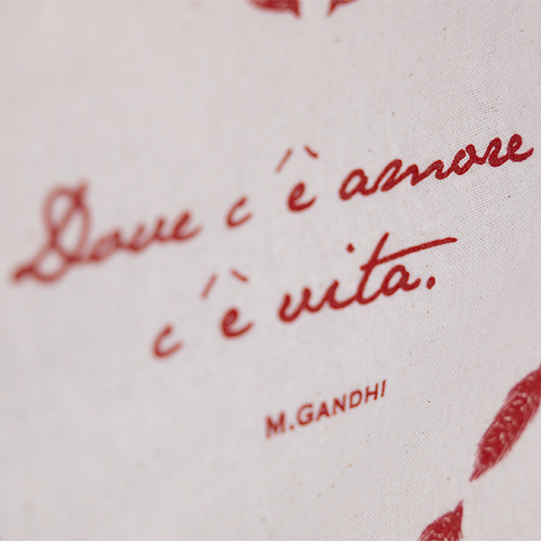 Dove c'è amore
c'è vita.
M.GANDHI